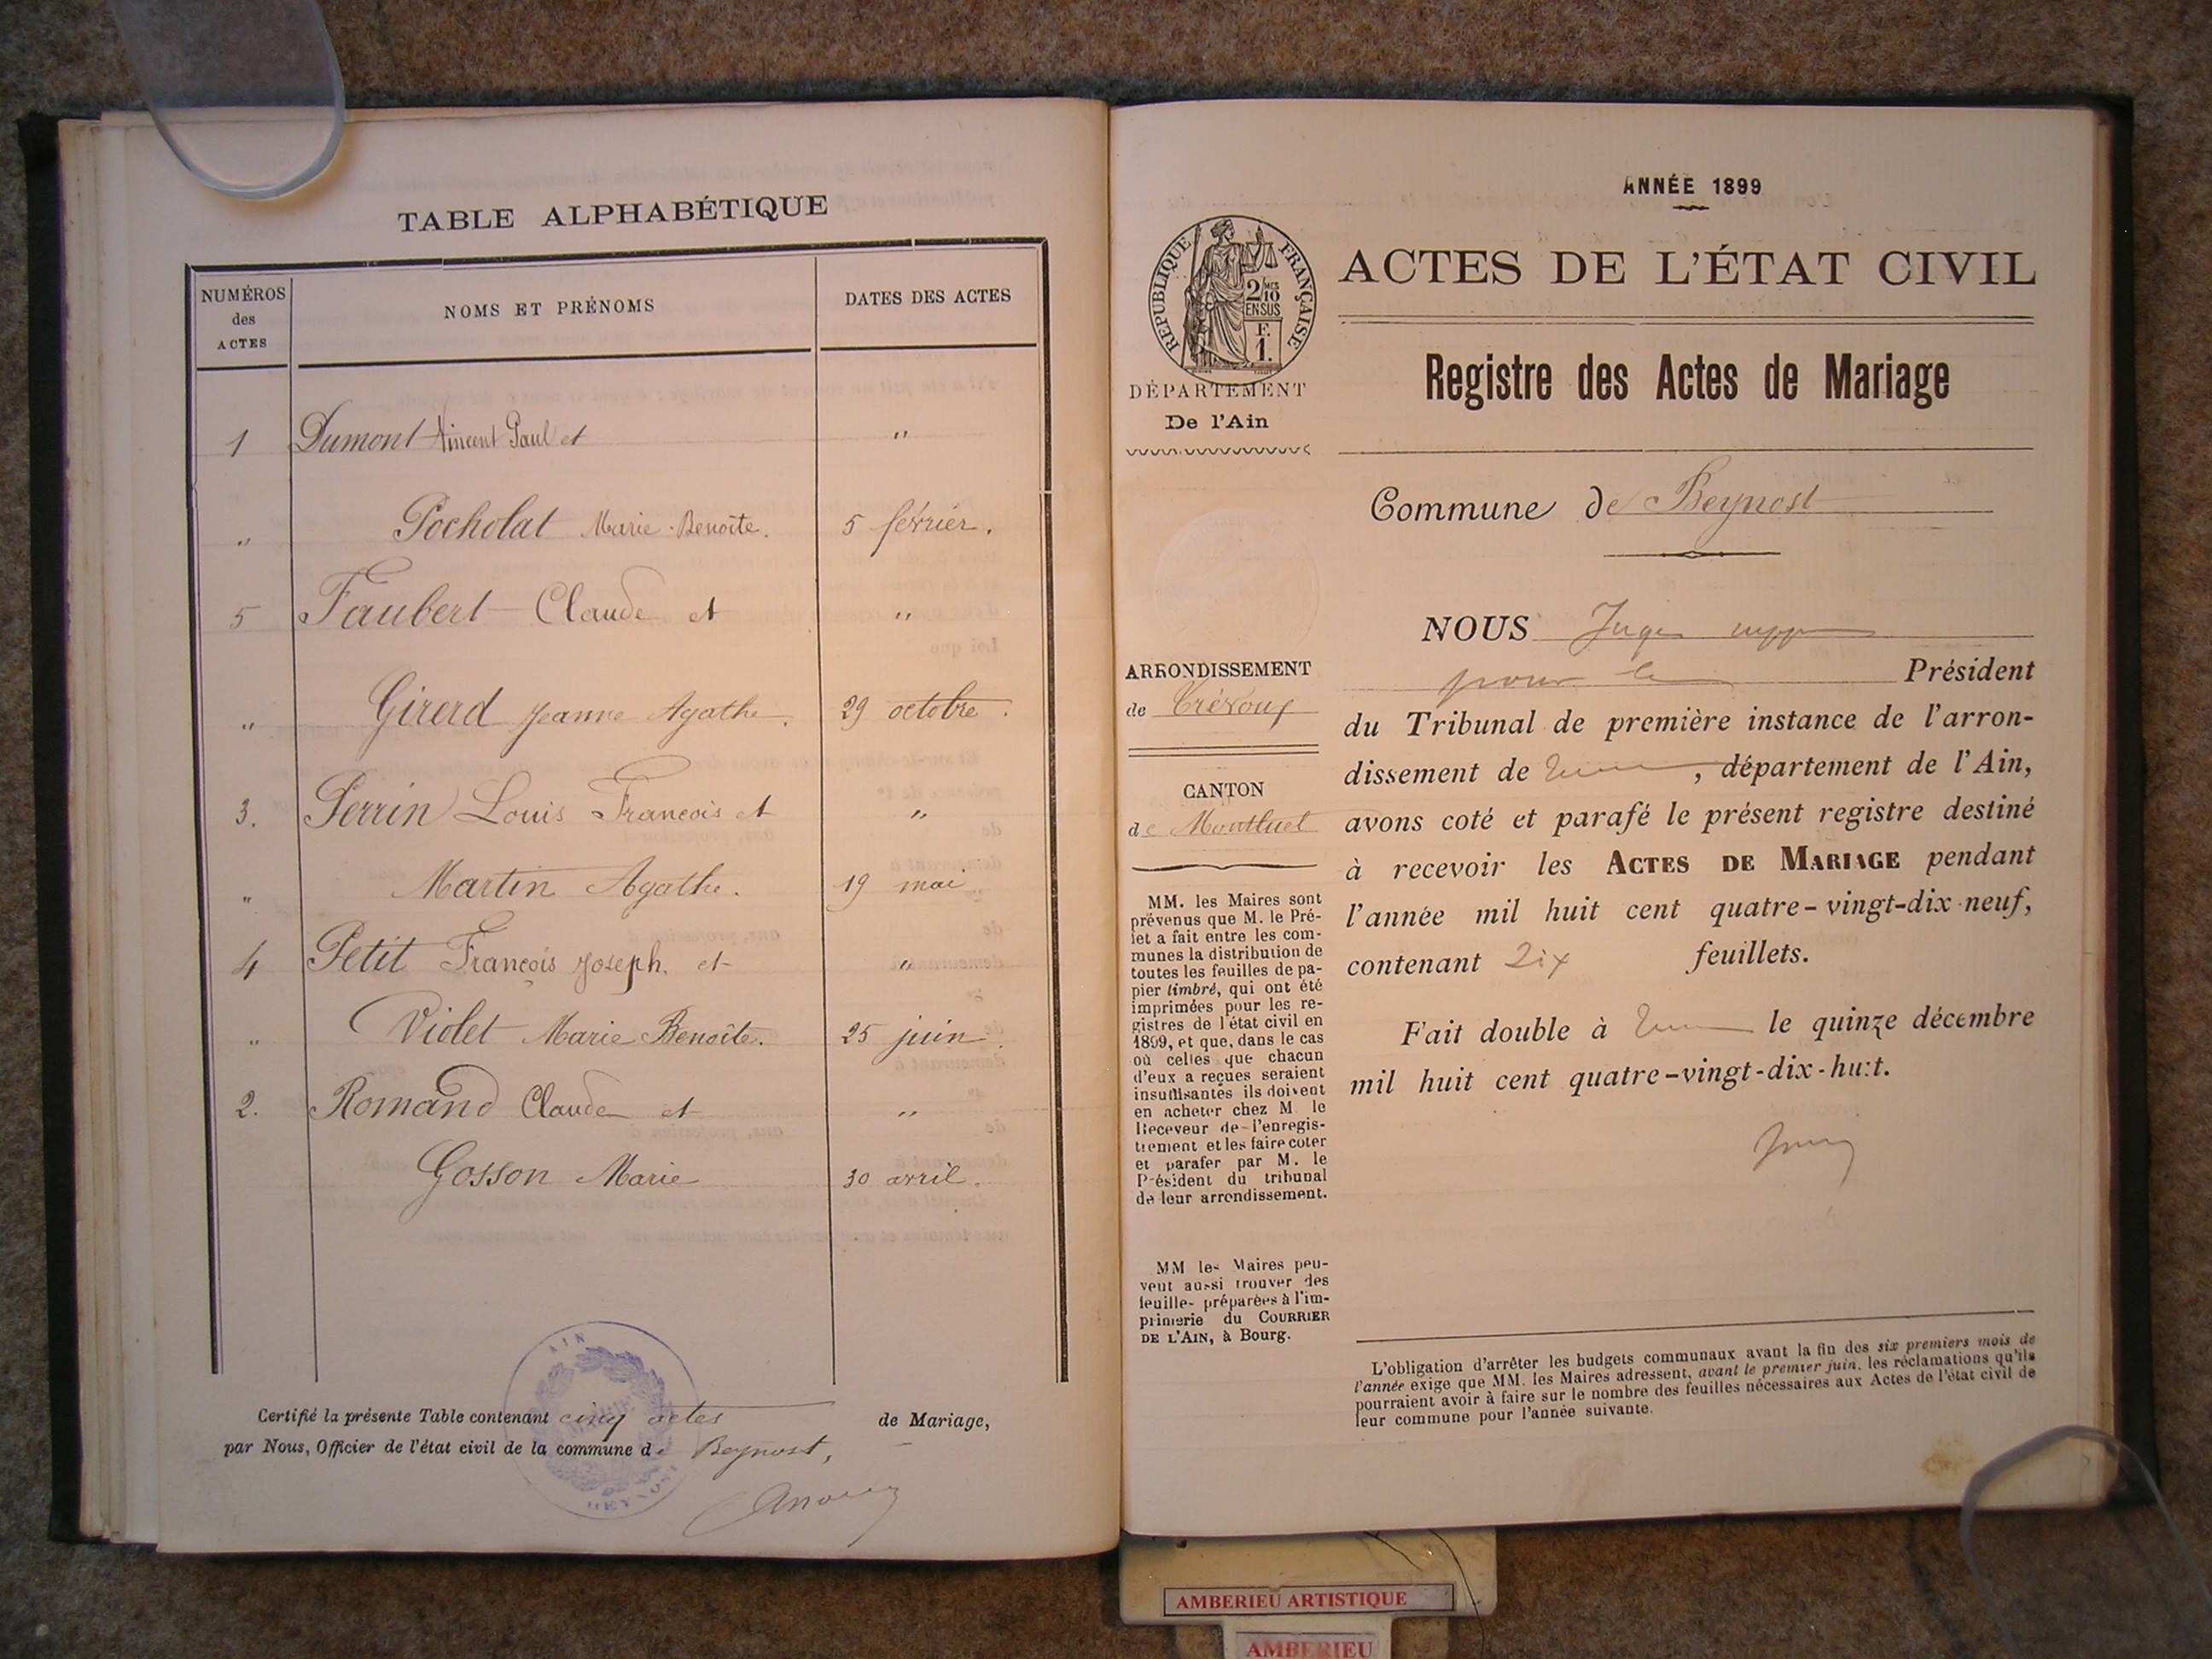 TABLE ALPHABÉTIQUE
NUMÉROS
des
ACTES
NOMS ET PRÉNOMS
DATES DES ACTES
1 Dumont Vincent Paul et "
" Pocholat Marie Benoîte. 5 février.
5 Faubert Claude et "
" Girerd Jeanne Agathe. 29 octobre.
3. Perrin Louis François et "
" Martin Agathe. 19 mai
4 Petit François Joseph. et "
" Violet Marie Benoîte. 25 juin.
2. Romand Claude et "
Gosson Marie 30 avril.
Certifié la présente Table contenant cinq actes de Mariage,
par Nous, Officier de l'état civil de la commune de Beynost,
AIN
BEYNOST
ANNÉE 1899
RÉPUBLIQUE FRANÇAISE
2/10
MES
EN SUS
F.
1.
DÉPARTEMENT
De l'Ain
ACTES DE L'ÉTAT CIVIL
Registre des Actes de Mariage
Commune de Beynost
ARRONDISSEMENT
de Trévoux
CANTON
de Montluel
MM. les Maires sont
prévenus que M. le Pré-
fet a fait entre les com-
munes la distribution de
toutes les feuilles de pa-
pier timbré, qui ont été
imprimées pour les re-
gistres de l'état civil en
1899, et que, dans le cas
où celles que chacun
d'eux a reçues seraient
insuffisantes ils doivent
en acheter chez M le
Receveur de l'enregis-
trement et les faire coter
et parafer par M. le
Président du tribunal
de leur arrondissement.
MM les Maires peu-
vent aussi trouver des
feuilles préparées à l'im-
primerie du COURRIER
DE L'AIN, à Bourg.
NOUS Juge
pour le Président
du Tribunal de première instance de l'arron-
dissement de , département de l'Ain,
avons coté et parafé le présent registre destiné
à recevoir les ACTES DE MARIAGE pendant
l'année mil huit cent quatre-vingt-dix-neuf,
contenant Dix feuillets.
Fait double à le quinze décembre
mil huit cent quatre-vingt-dix-huit.
L'obligation d'arrêter les budgets communaux avant la fin des six premiers mois de
l'année exige que MM. les Maires adressent, avant le premier juin, les réclamations qu'ils
pourraient avoir à faire sur le nombre des feuilles nécessaires aux Actes de l'état civil de
leur commune pour l'année suivante.
AMBERIEU ARTISTIQUE
AMBERIEU